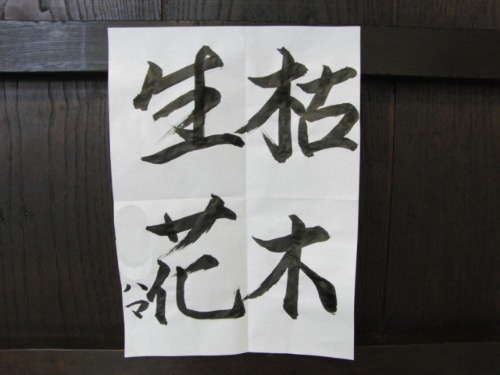 枯木
生花
ハマ